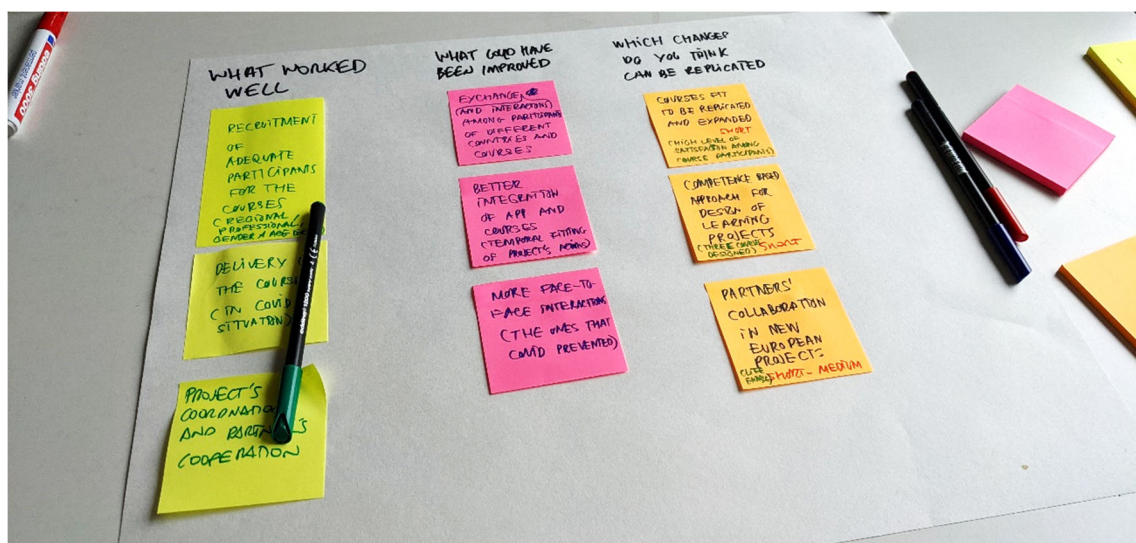 WHAT WORKED
WELL
RECRUITMENT
OF
ADEQUATE
PARTICIPANTS
FOR THE
COURSES
(REGIONAL,
PROFESSIONAL,
GENDER & AGE
DELIVERY
THE
(IN COVID
SITUATION)
PROJECT'S
AND
COOPERATION
WHAT COULD HAVE
BEEN IMPROVED
EXCHANGES
(AND INTERACTIONS)
AMONG PARTICIPANTS
OF DIFFERENT
COUNTRIES AND
COURSES
BETTER
INTEGRATION
OF APP AND
COURSES
(TEMPORAL FITTING
OF PROJECT'S ACTIONS)
MORE FACE-TO-
FACE INTERACTIONS
(THE ONES THAT
COVID PREVENTED)
WHICH CHANGES
DO YOU THINK
CAN BE REPLICATED
COURSES FIT
TO BE REPLICATED
AND EXPANDED
SHORT
(HIGH LEVEL OF
SATISFACTION AMONG
COURSE PARTICIPANTS)
COMPETENCE BASED
APPROACH FOR
DESIGN OF
LEARNING
PROJECTS
(THREE COURSES
DESIGNED) SHORT
PARTNERS'
COLLABORATION
IN NEW
EUROPEAN
PROJECTS
SHORT-MEDIUM
edding 360